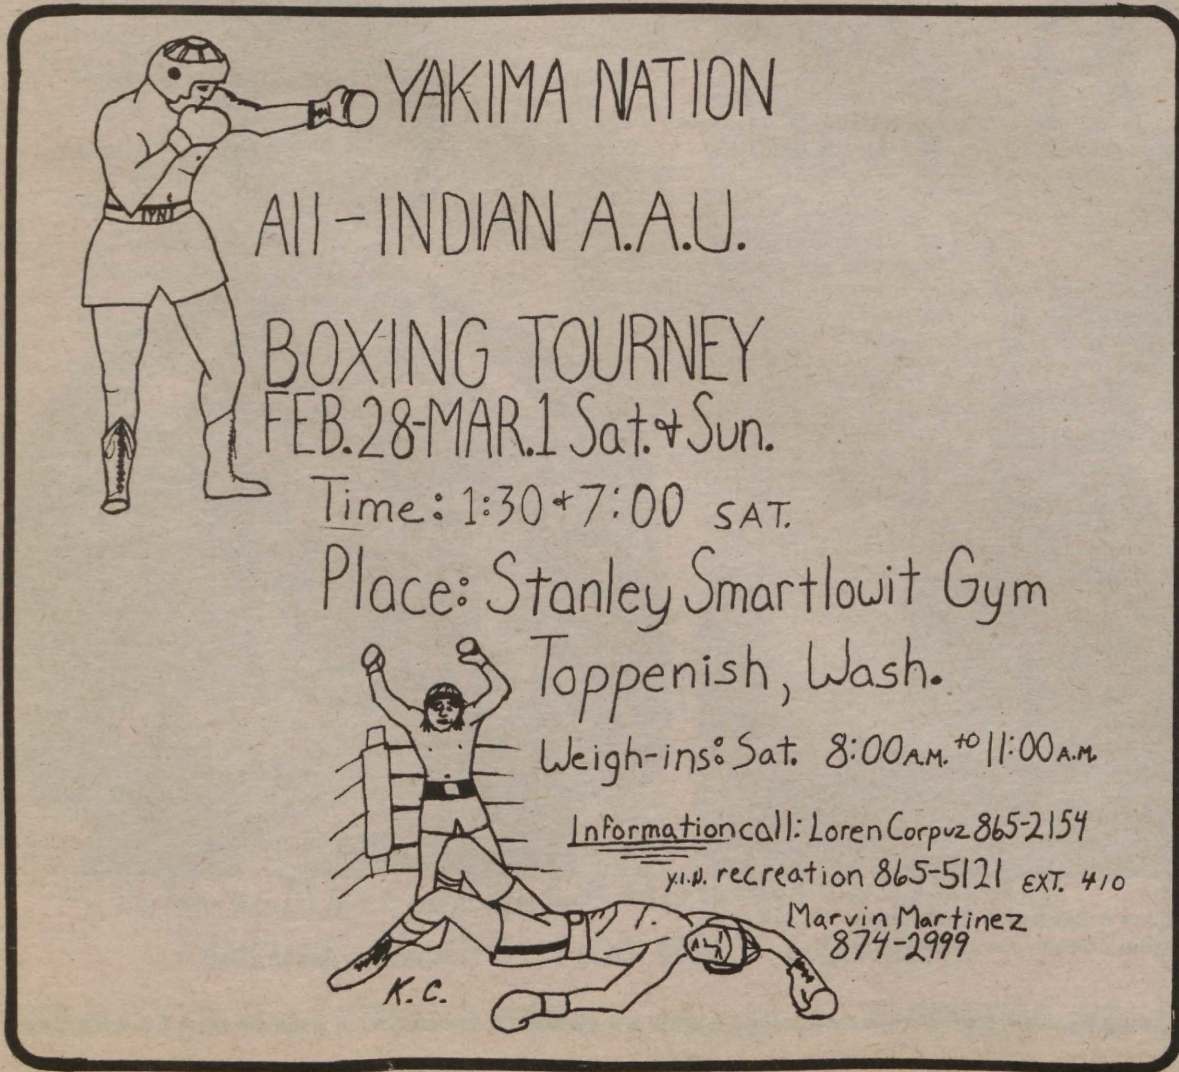 YAKIMA NATION
All-INDIAN A.A.U.
BOXING TOURNEY
FEB.28-MAR.1 Sat.& Sun.
Time: 1:30 & 7:00 SAT.
Place: Stanley Smartlowit Gym
Toppenish, Wash.
Weigh-ins: Sat. 8:00A.M. to 11:00A.M.
Information call: Loren Corpuz 865-2154
Y.I.N. recreation 865-5121 EXT. 410
Marvin Martinez
874-2999
K.C.